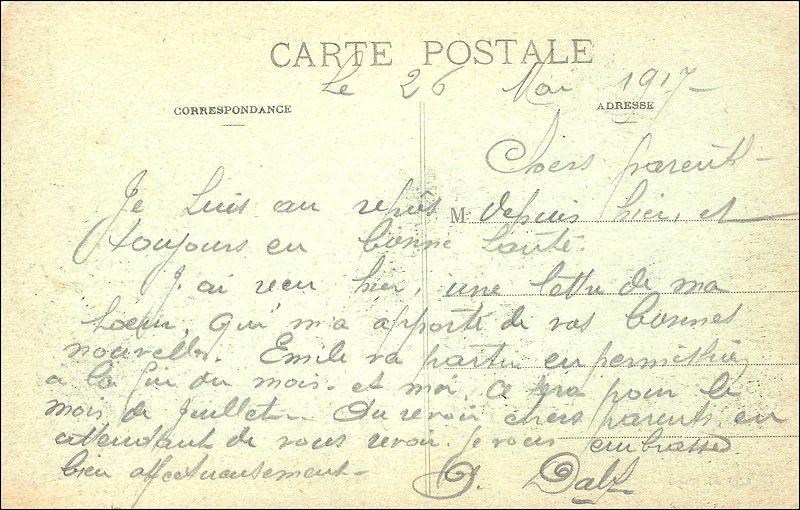 CARTE POSTALE
Le 26 Mai 1917
CORRESPONDANCE
ADRESSE
Chers parents
Je suis au repos M depuis hier, et
toujours en bonne santé.
J'ai reçu hier, une lettre de ma
soeur, qui m'a apporté de vos bonnes
nouvelles. Emile va partir en permission
a la fin du mois. et moi, ce sera pour le
mois de Juillet. Au revoir chers parents, en
attendant de vous revoir. je vous embrasse
bien affectueusement